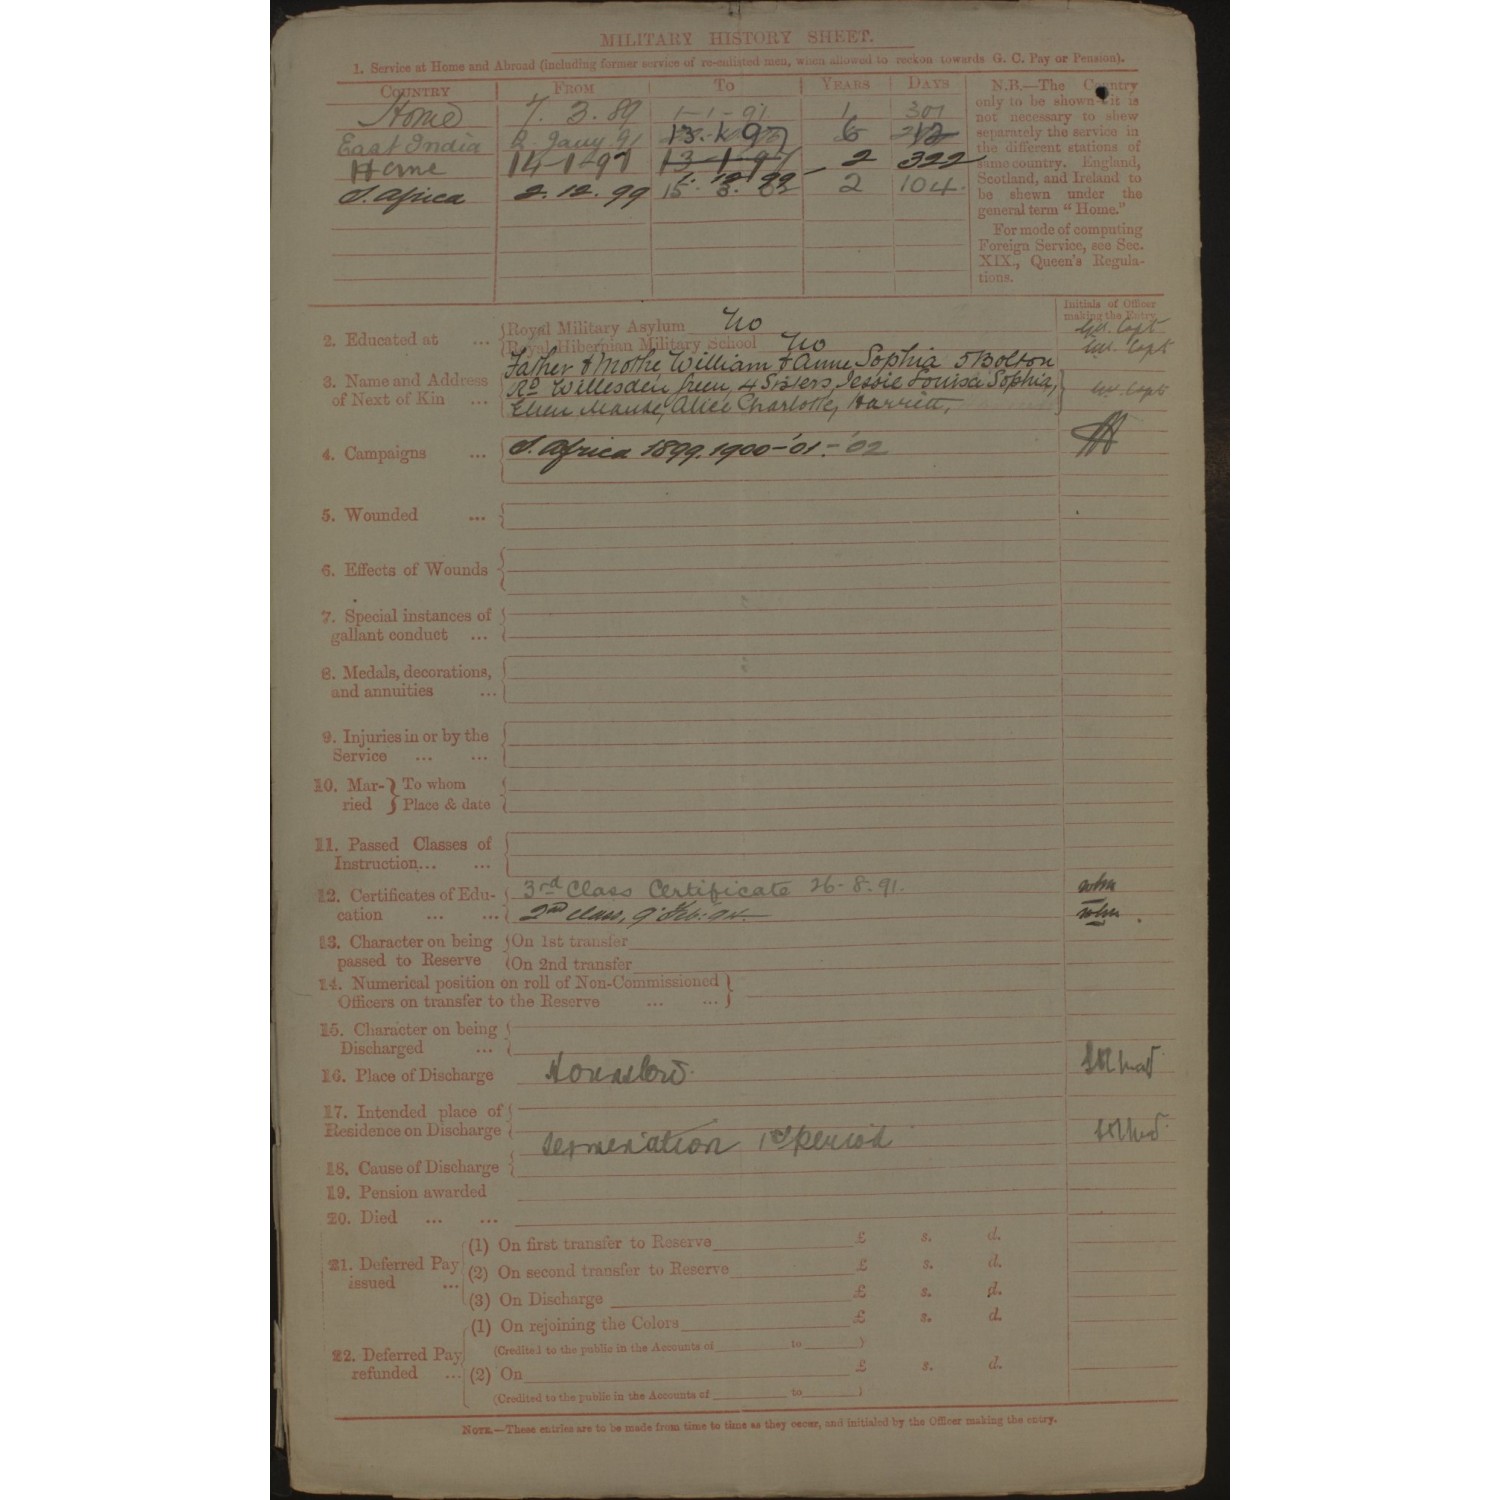 MILITARY HISTORY SHEET.
1. Service at Home and Abroad (including former service of re-enlisted men, when allowed to reckon towards G. C. Pay or Pension).
COUNTRY FROM TO YEARS DAYS
Home 7. 3. 89 1-1-91 1 301
East India 2. Jany. 91 13. 1. 97 6 12
Home 14-1-97 13-1-97 1. 12. 99 2 322
S. Africa 2. 12. 99 15. 3. 02 2 104.
N.B.—The Country
only to be shown—it is
not necessary to shew
separately the service in
the different stations of
same country. England,
Scotland, and Ireland to
be shewn under the
general term "Home."
For mode of computing
Foreign Service, see Sec.
XIX., Queen's Regula-
tions.
Initials of Officer
making the Entry.
2. Educated at ... Royal Military Asylum No Capt
Royal Hibernian Military School No Capt
3. Name and Address of Next of Kin ...
Father & Mother William & Anne Sophia 5 Bolton
Rd Willesden Green, 4 Sisters, Jessie Louisa Sophia, Capt
Ellen Maude, Alice Charlotte, Harriett,
4. Campaigns ... S. Africa 1899. 1900-'01.-'02
5. Wounded ...
6. Effects of Wounds
7. Special instances of
gallant conduct ...
8. Medals, decorations,
and annuities ...
9. Injuries in or by the
Service ... ...
10. Married To whom
Place & date
11. Passed Classes of
Instruction... ...
12. Certificates of Edu-
cation ... ...
3rd Class Certificate 26-8.91. whm
2nd class, 9 Feb. 94. whm
13. Character on being
passed to Reserve
On 1st transfer
On 2nd transfer
14. Numerical position on roll of Non-Commissioned
Officers on transfer to the Reserve ... ...
15. Character on being
Discharged ...
16. Place of Discharge Hounslow
17. Intended place of
Residence on Discharge
18. Cause of Discharge Termination 1st period
19. Pension awarded
20. Died ... ...
21. Deferred Pay
issued ...
(1) On first transfer to Reserve £ s. d.
(2) On second transfer to Reserve £ s. d.
(3) On Discharge £ s. d.
22. Deferred Pay
refunded ...
(1) On rejoining the Colors £ s. d.
(Credited to the public in the Accounts of to )
(2) On £ s. d.
(Credited to the public in the Accounts of to )
NOTE.—These entries are to be made from time to time as they occur, and initialed by the Officer making the entry.